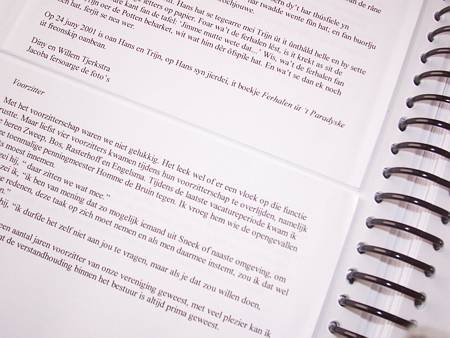 dy't har thúsfiele yn
nar wadde wente fûn hat, en fan buorlju
Hans hat se tegearre mei Trijn út it ûnthâld helle en by sette
letters op papier. Foar wa't de ferhalen lést, is it krekt as sit de
kant fan de tafel: 'Jimme mutte wete dat...' Wis, wa't de ferhalen fan
Trijn oer de Potten beharket, wit wat him dêr ôfspile hat. En wa't se dan ek noch
hat, ferjit se noz wer.
Op 24 juny 2001 is oan Hans en Trijn, op Hans syn jierdei, it boekje Ferhalen út 't Paradyske
út freonskip oanbean.
Diny en Willem Tjerkstra
Jacoba fersoarge de foto's
Voorzitter
Met het voorzitterschap waren we niet gelukkig. Het leek wel of er een vloek op die functie
rustte. Maar liefst vier voorzitters kwamen tijdens hun voorzitterschap te overlijden, namelijk
de heren Zweep, Bos, Rasterhoff en Engelsma. Tijdens de laatste vacatureperiode kwam ik
toenmalige penningmeester Homme de Bruin tegen. Ik vroeg hem wie de opengevallen
moest innemen.
zei hij, " daar zitten we wat mee."
zei ik, "ik ben van mening dat zo mogelijk iemand uit Sneek of naaste omgeving, om
redenen, deze taak op zich moet nemen en als men daarmee instemt, zou ik dat wel
hij, "ik durfde het zelf niet aan jou te vragen, maar als je dat zou willen doen.
een aantal jaren voorzitter van onze vereniging geweest, met veel plezier kan ik
at de verstandhouding binnen het bestuur is altijd prima geweest.